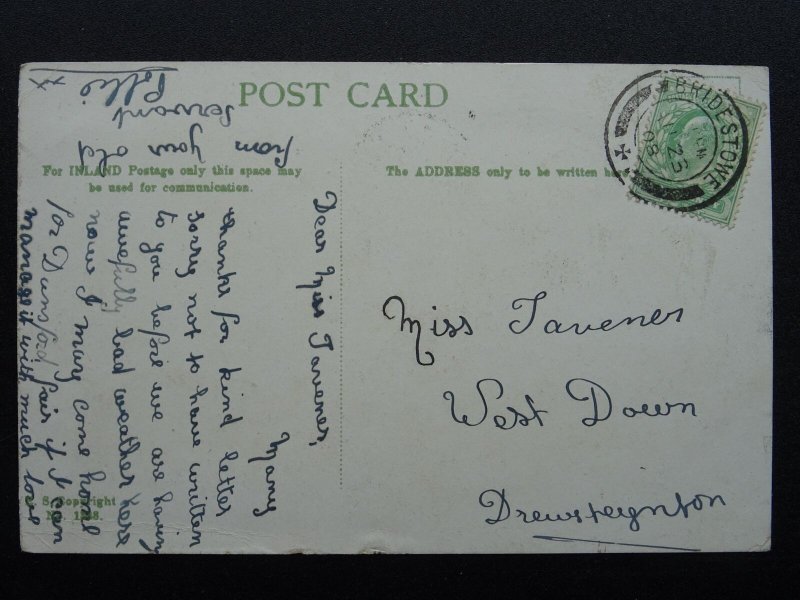 POST CARD
For INLAND Postage only this space may
be used for communication.
The ADDRESS only to be written
BRIDESTOWE
23
08
Miss Tavener
West Down
Drewsteynton
Dear Miss Tavener,
Many
thanks for kind letter
sorry not to have written
to you before we are having
awefully bad weather here
now I may come home
for Dunsford fair if I can
manage it with much love
from your old
servant
xx
S. Copyright